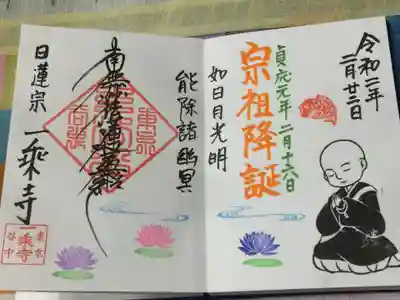 令和二年
二月廿二日
貞応元年 二月十六日
宗祖降誕
如日月光明
能除諸幽冥
南無妙法蓮華経
日蓮宗 一乗寺
東京
一乗寺
谷中